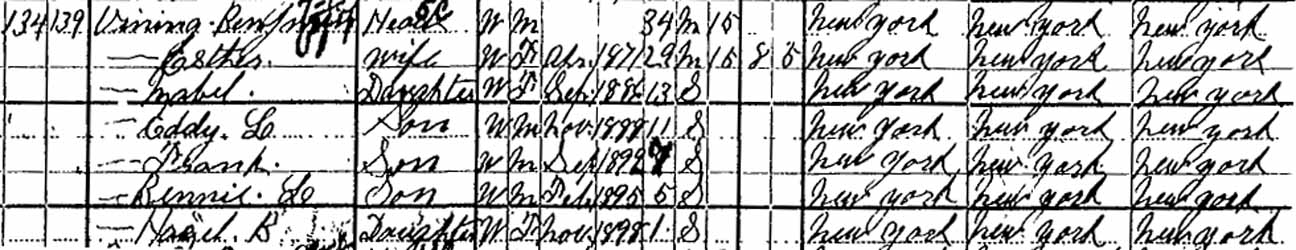 134 139 Vining Benjamin Head W M 34 M 15 New York New York New York
— Esther. Wife W F Apr. 1871 29 M 15 8 5 New York New York New York
— Mabel. Daughter W F Sep 1886 13 S New York New York New York
— Eddy. L Son W M Nov. 1888 11 S New York New York New York
— Frank. Son W M Sep 1892 7 S New York New York New York
— Bennie. L Son W M Feb 1895 5 S New York New York New York
— Hazel. B Daughter W F Nov. 1898 1 S New York New York New York